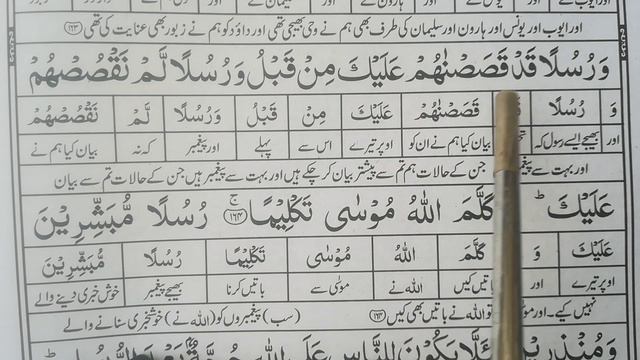 اور ایوب اور یونس اور ہارون اور سلیمان کی طرف بھی ہم نے وحی بھیجی تھی اور داؤد کو ہم نے زبور بھی عنایت کی تھی ﴿۱۶۳﴾
وَرُسُلًا قَدْ قَصَصْنٰهُمْ عَلَيْكَ مِنْ قَبْلُ وَرُسُلًا لَّمْ نَقْصُصْهُمْ
وَ رُسُلًا قَصَصْنٰهُمْ عَلَيْكَ مِنْ قَبْلُ وَرُسُلًا لَّمْ نَقْصُصْهُمْ
اور بھیجے ایسے رسول کہ بیان کیا ہم نے ان کو اوپر تیرے اس سے پہلے اور پیغمبر کہ نہ بیان کیا ہم نے
اور بہت سے جن کے حالات ہم تم سے پیشتر بیان کر چکے ہیں اور بہت سے پیغمبر ہیں جن کے حالات تم سے بیان
عَلَيْكَ ؕ كَلَّمَ اللّٰهُ مُوْسٰى تَكْلِيْمًا ﴿۱۶۴﴾ۚ رُسُلًا مُّبَشِّرِيْنَ
عَلَيْكَ وَ كَلَّمَ اللّٰهُ مُوْسٰى تَكْلِيْمًا رُسُلًا مُّبَشِّرِيْنَ
اوپر تیرے اور باتیں کیں اللہ نے موسٰی سے باتیں کرنا بھیجے پیغمبر خوش خبری دینے والے
نہیں کیے۔ اور اللہ نے باتیں بھی کیں ﴿۱۶۴﴾ (سب) پیغمبروں کو (اللہ نے) خوشخبری سنانے والے